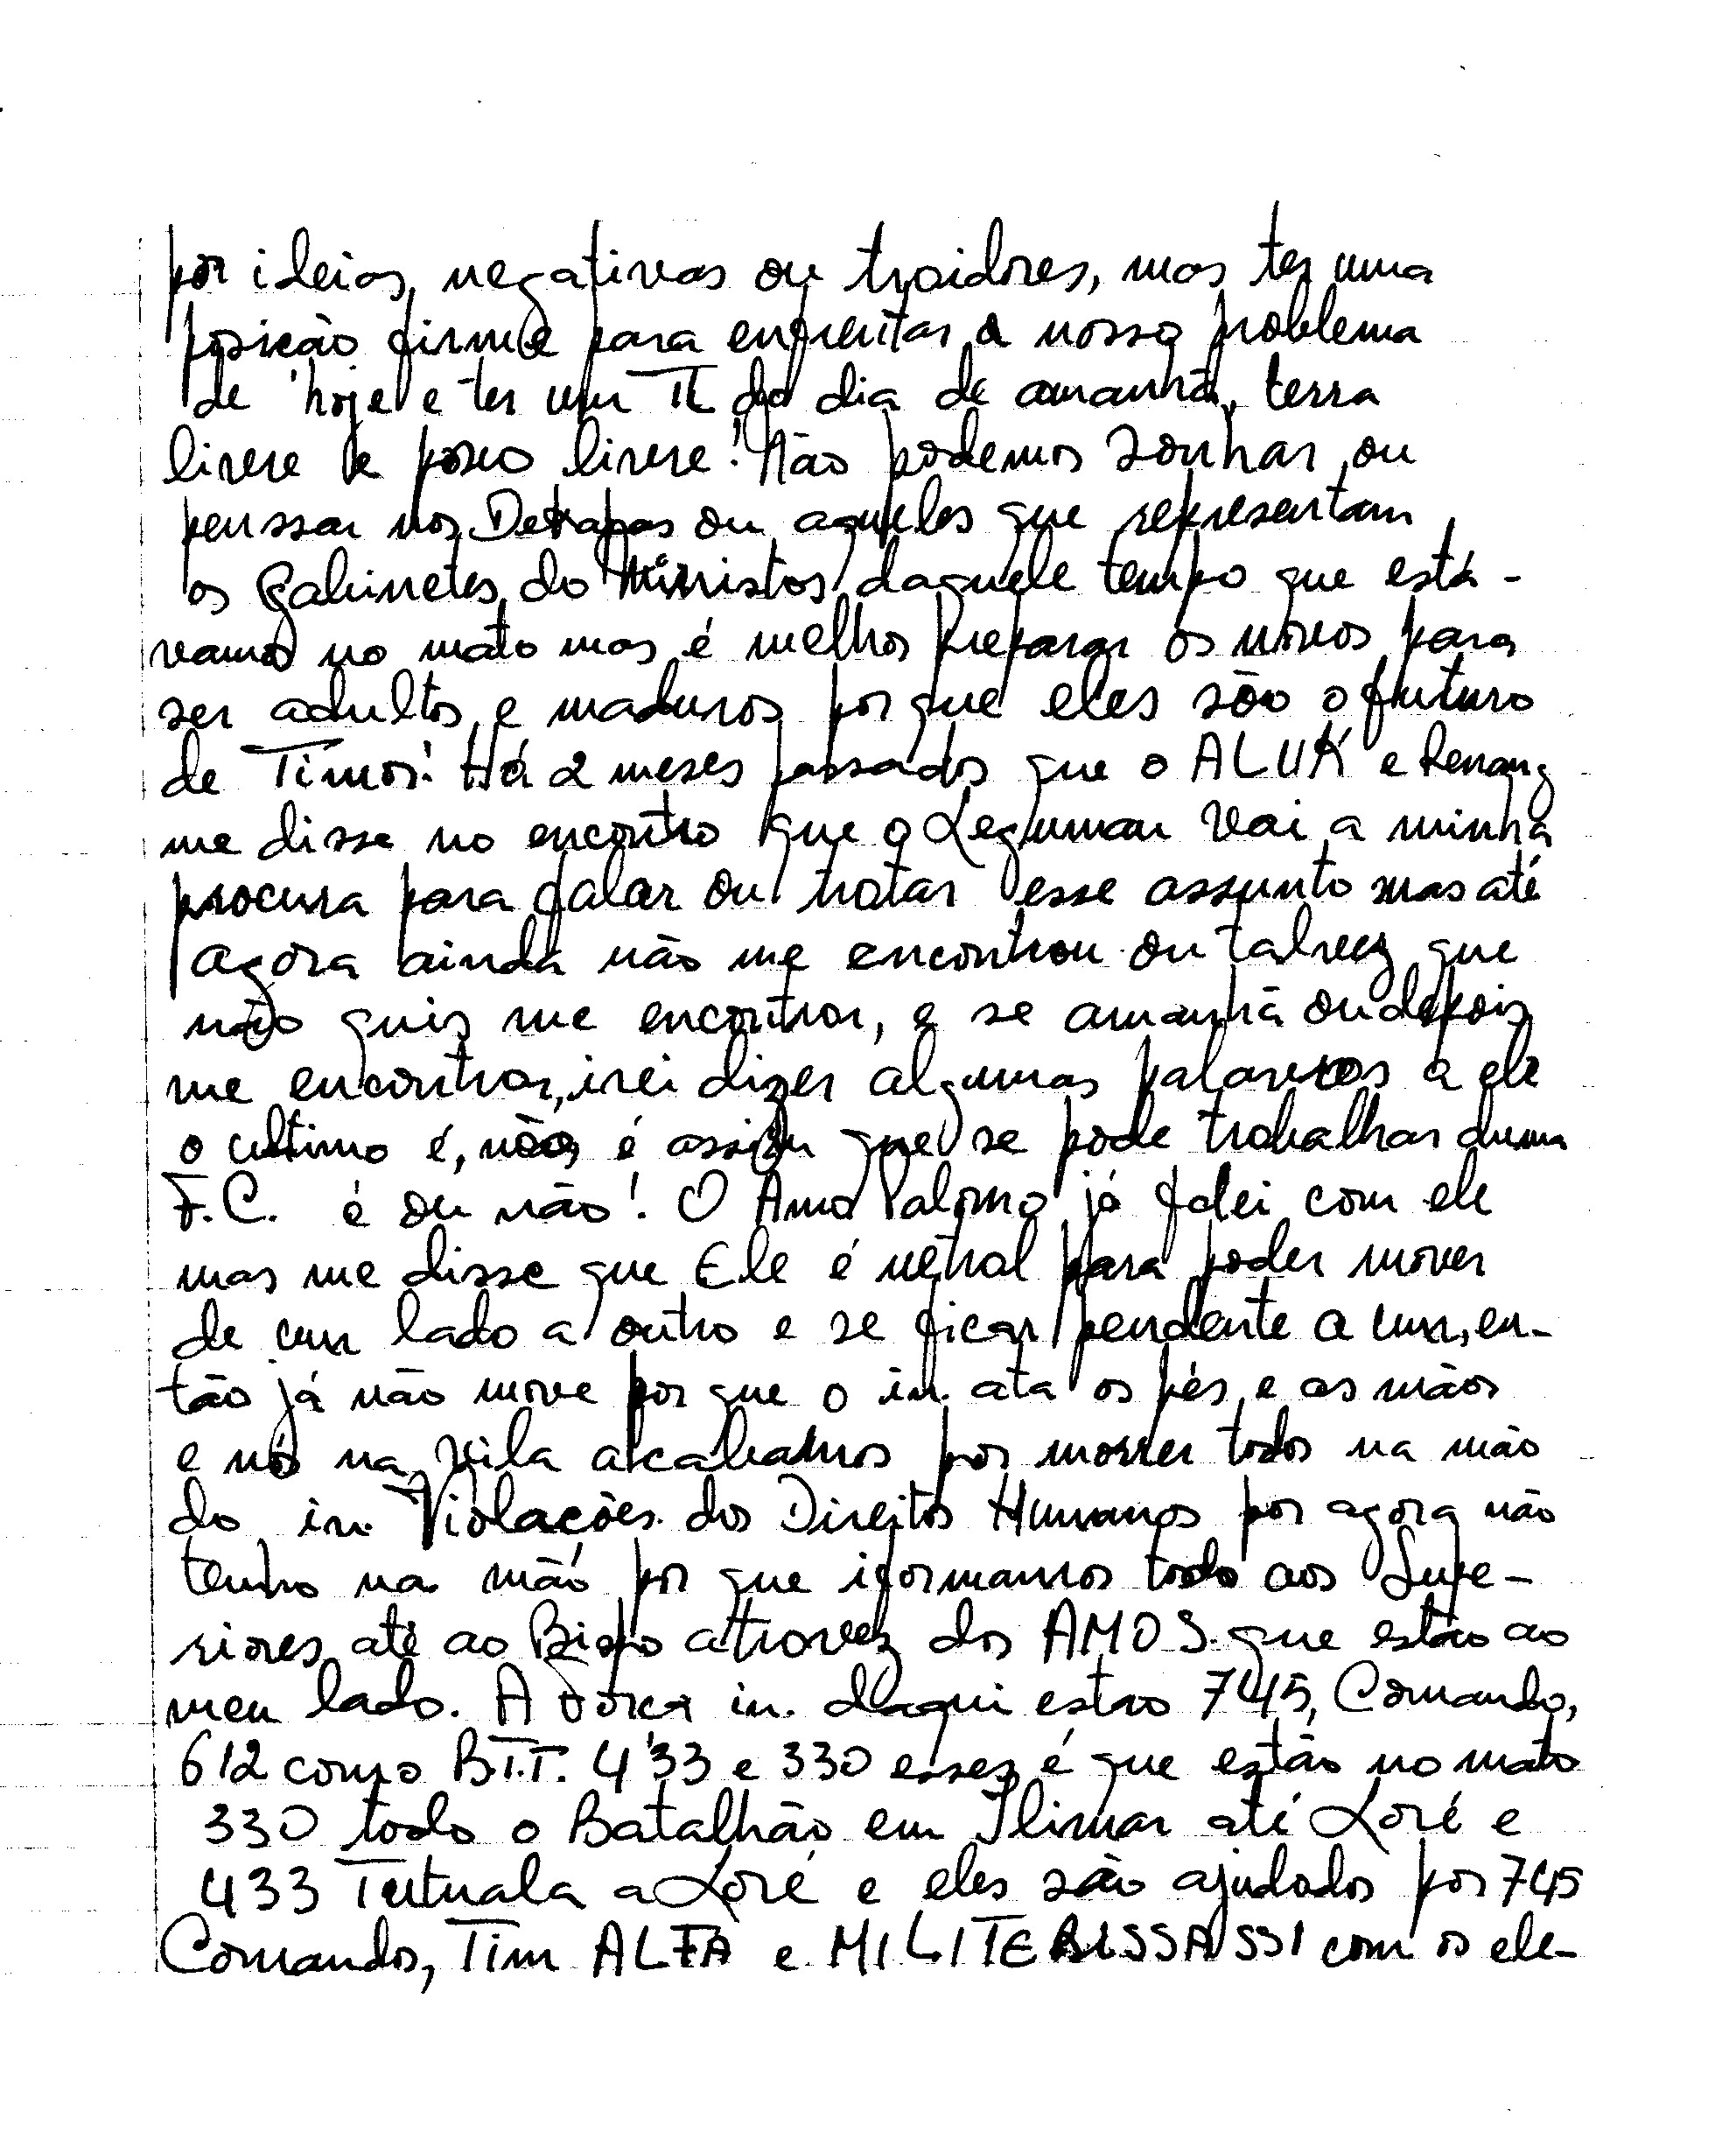 por ideias negativas ou traidores, mas ter uma
posição firme para enfrentar o nosso problema
de hoje e ter um TL do dia de amanhã, terra
livere e povo livere! Não podemos zonhar ou
penssar nos Detrapas ou aqueles que representam
os gabinetes do Ministos daquele tempo que está-
vamos no mato mas é melhor preparar os novos para
ser adultos e maduros por que eles são o futuro
de Timor! Há 2 meses passados que o ALUK e Renang
me disse no encontro que o Leguman vai a minha
procura para falar ou tratar esse assunto mas até
agora ainda não me encontrou ou talvez que
não quis me encontrar, e se amanhã ou depois
me encontrar, irei dizer algumas palaveras a ele
o ultimo é, não é assim que se pode trabalhar duma
F.C. é ou não! O Amo Palomo já falei com ele
mas me disse que Ele é netral para poder mover
de um lado a outro e se ficar pendente a um, en-
tão já não move por que o in. ata os pés e as mãos
e nós na vila acabamos por morrer todos na mão
do in. Violações dos Direitos Humanos por agora não
tenho na mão por que iformamos todo aos Supe-
riores até ao Bispo atravez dos AMOS que estão ao
meu lado. A Força in. daqui estão 745, Comando,
612 como B.T.T. 433 e 330 esses é que estão no mato
330 todo o Batalhão em Ilimar até Loré e
433 Tutuala a Loré e eles são ajudados por 745
Comandos, Tim ALFA e MILITEBISSASSI com os ele-